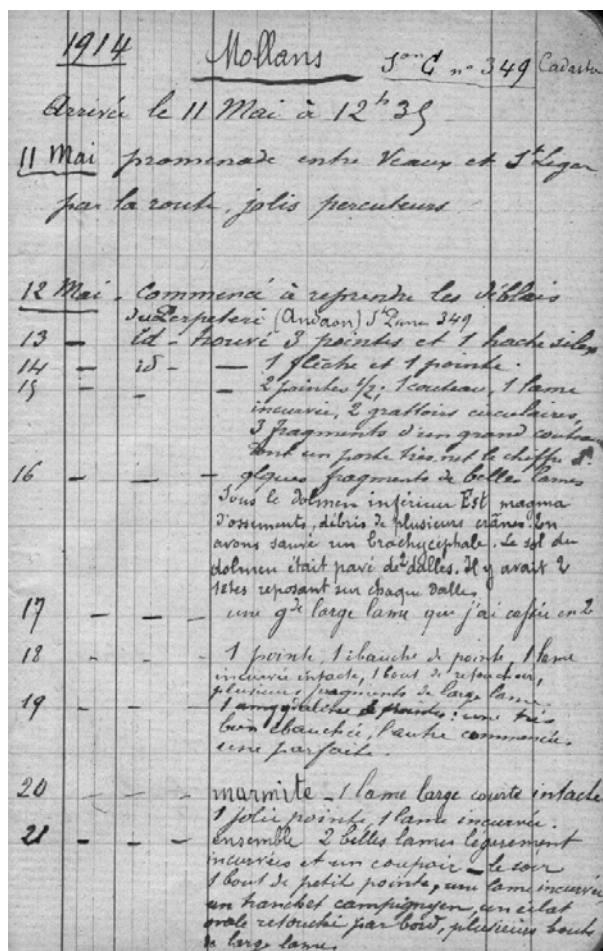 1914 Mollans Son C no 349 Cadastre
Arrivée le 11 Mai à 12h 35
11 Mai promenade entre Veaux et St Leger
par la route, jolis percuteurs
12 Mai. Commencé à reprendre les déblais
du Perpeteri (Andaon) 349
13 — id - trouvé 3 pointes et 1 hache silex
14 — id - — 1 flèche et 1 pointe.
15 — — 2 pointes 1/2; 1 couteau, 1 lame
incurvée, 2 grattoirs circulaires,
3 fragments d'un grand couteau
dont un porte très net le chiffre
16 — — — qlques fragments de belles lames
Sous le dolmen inférieur Est magma
d'ossements, débris de plusieurs crânes. En
avons sauvé un brachycéphale. Le sol du
dolmen était pavé de 2 dalles. Il y avait 2
têtes reposant sur chaque dalle.
17 — — — une gde large lame que j'ai cassée en 2
18 - - - 1 pointe, 1 ébauche de pointe, 1 lame
incurvée intacte, 1 bout de retouchoir,
plusieurs fragments de large lame
19 - - - 1 pointes: une très
bien ébauchée, l'autre commencée
une parfaite.
20 - - - marmite - 1 lame large courte intacte
1 jolie pointe, 1 lame incurvée.
21 - - - ensemble 2 belles lames légèrement
incurvées et un coupoir - le soir
1 bout de petit pointe, une lame incurvée
un tranchet campignyen, un éclat
ovale retouché par bord, plusieurs bouts
de large lame